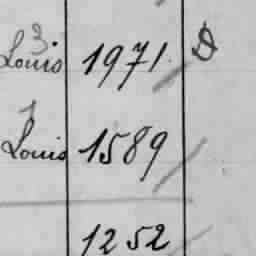 3
Louis 1971.
1
Louis 1589
1252